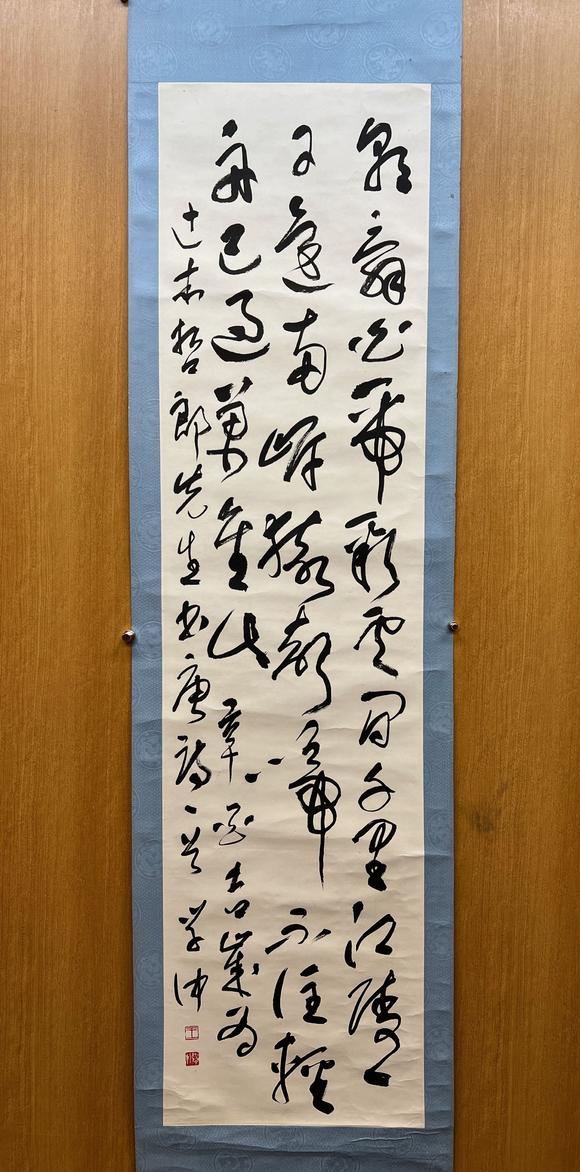 朝辭白帝彩雲間千里江陵一
日還兩岸猿聲啼不住輕
舟已過萬重山 辛酉吉歲為
辻本哲郎先生书唐詩一首 学仲